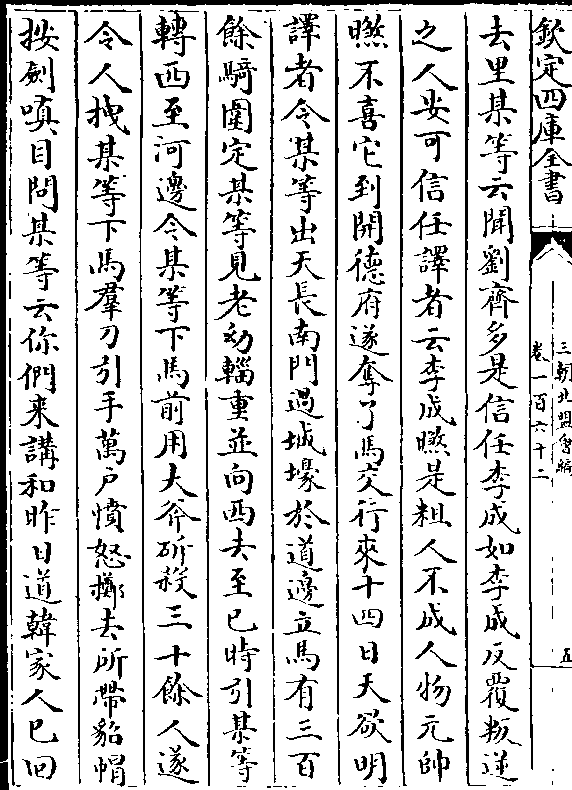 欽定四庫全書
三朝北盟會編
卷一百六十二
五
去里某等云聞劉齊多是信任李成如李成反覆叛逆
之人安可信任譯者云李成㬠是粗人不成人物元帥
㬠不喜它到開德府遂奪了馬交行來十四日天欲明
譯者令某等出天長南門過城壕於道邊立馬有三百
餘騎圍定某等見老幼輜重並向西去至巳時引某等
轉西至河邊令某等下馬前用大斧斫殺三十餘人遂
令人拽某等下馬羣刀引手萬户憤怒擲去所帶貂帽
按劍嗔目問某等云你們來講和昨日道韓家人已回